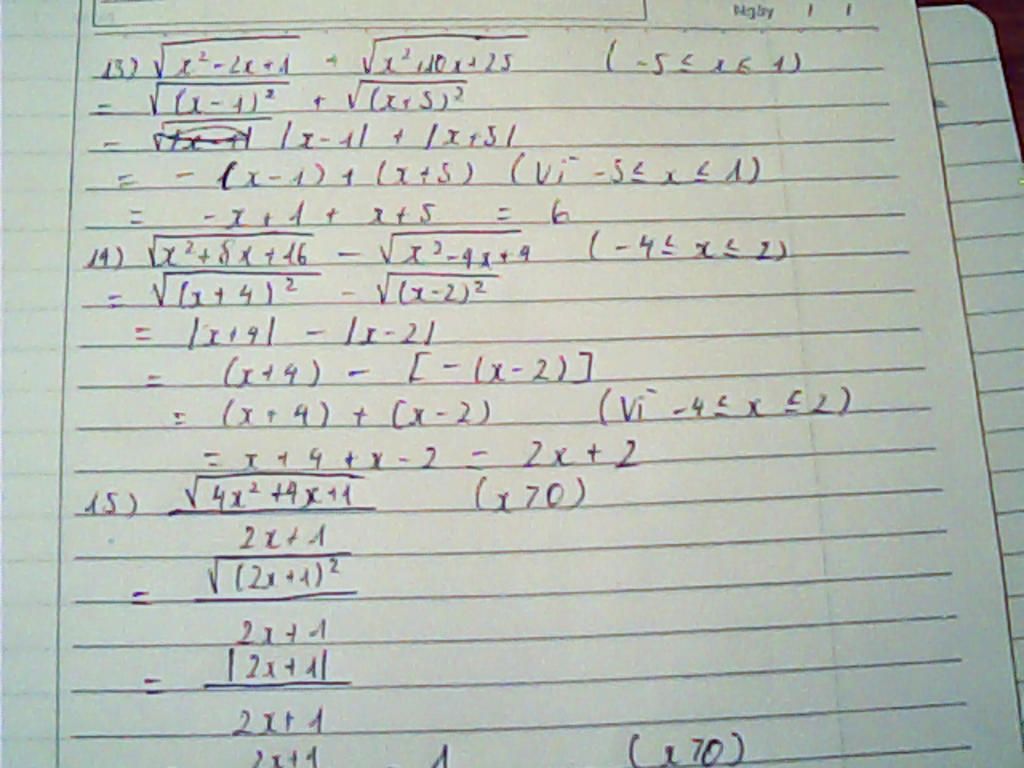 Ngày / /
13) √(x² - 2x + 1) + √(x² + 10x + 25) (-5 ≤ x ≤ 1)
= √((x - 1)²) + √((x + 5)²)
= |x - 1| + |x + 5|
= - (x - 1) + (x + 5) (Vì -5 ≤ x ≤ 1)
= -x + 1 + x + 5 = 6
14) √(x² + 8x + 16) - √(x² - 4x + 4) (-4 ≤ x ≤ 2)
= √((x + 4)²) - √((x - 2)²)
= |x + 4| - |x - 2|
= (x + 4) - [-(x - 2)]
= (x + 4) + (x - 2) (Vì -4 ≤ x ≤ 2)
= x + 4 + x - 2 = 2x + 2
15) √(4x² + 4x + 1) (x > 0)
2x + 1
= √((2x + 1)²)
2x + 1
= |2x + 1|
2x + 1
2x + 1 1 (x > 0)